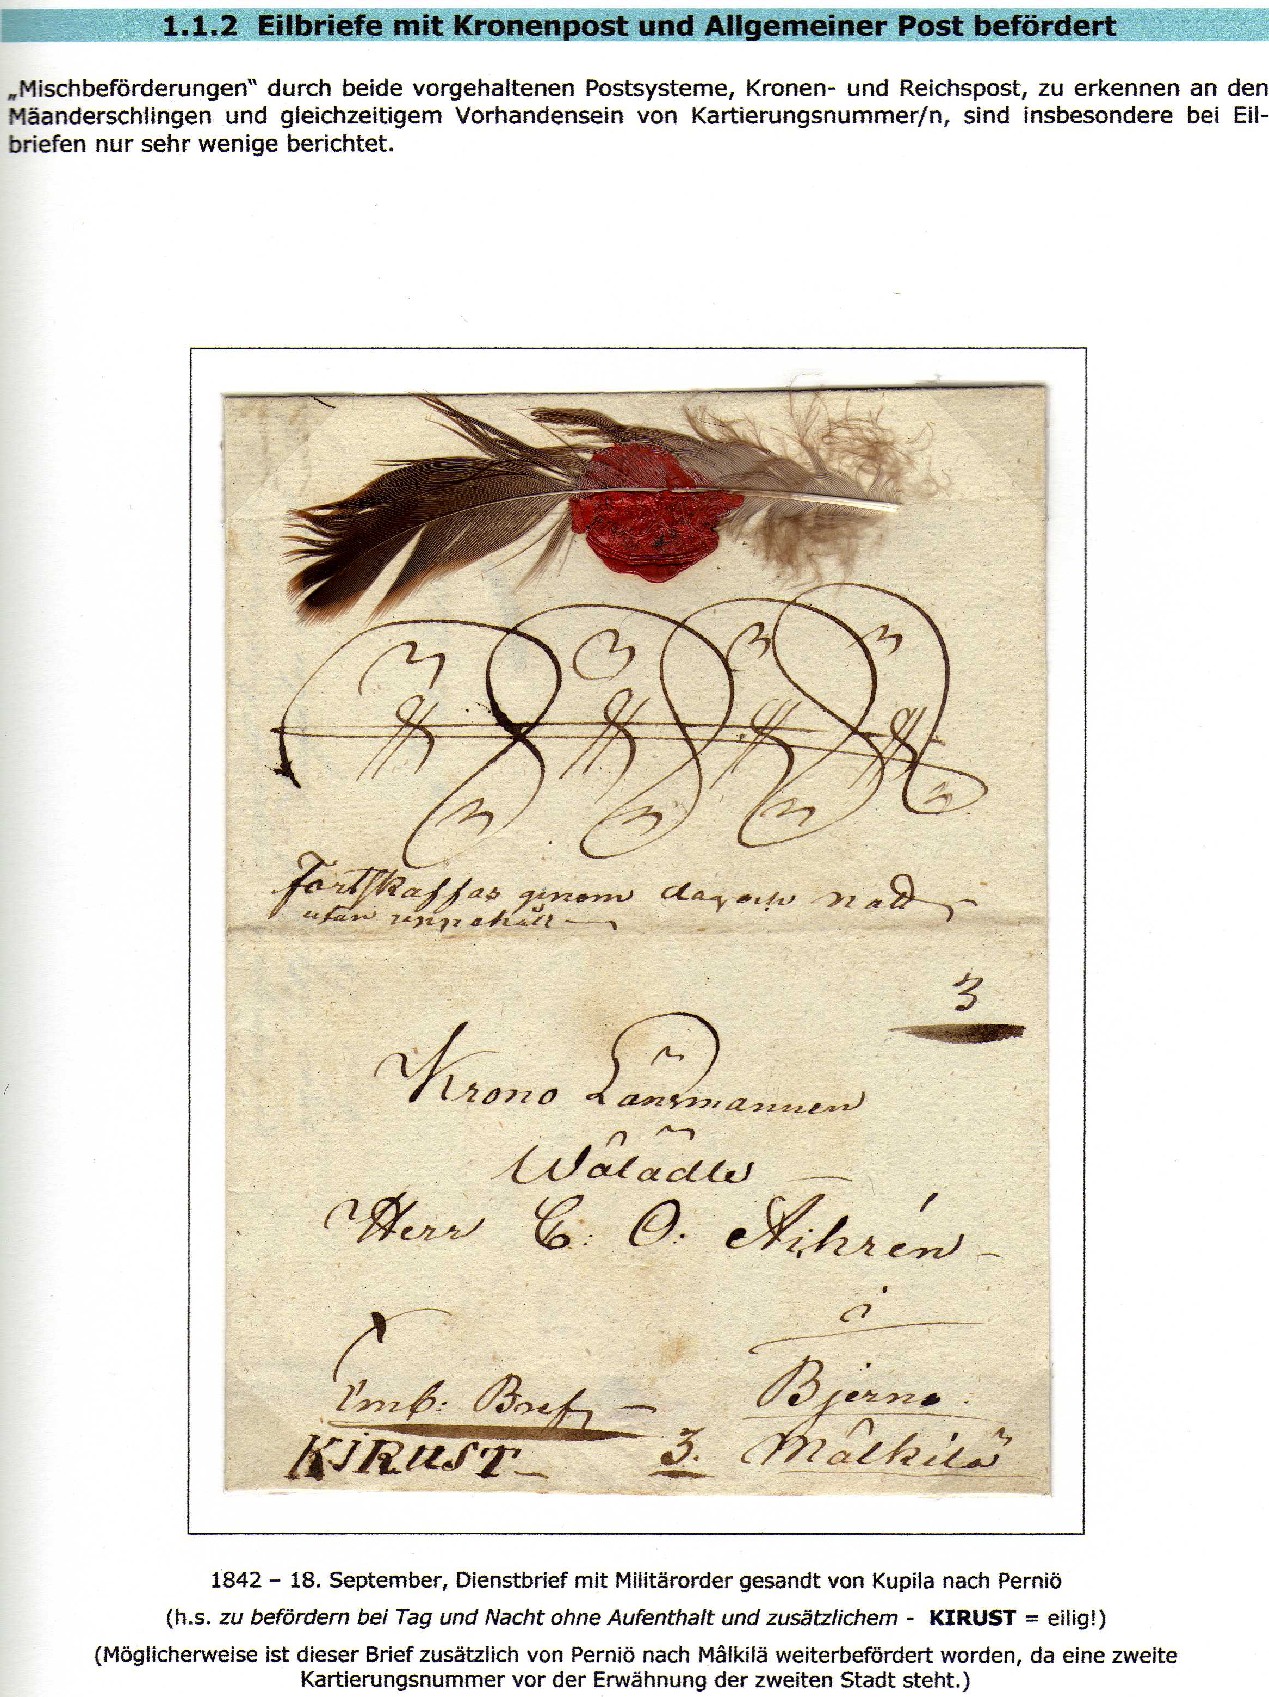 1.1.2 Eilbriefe mit Kronenpost und Allgemeiner Post befördert
„Mischbeförderungen“ durch beide vorgehaltenen Postsysteme, Kronen- und Reichspost, zu erkennen an den
Mäanderschlingen und gleichzeitigem Vorhandensein von Kartierungsnummer/n, sind insbesondere bei Eil-
briefen nur sehr wenige berichtet.
3 3 3 3
3 3 3 3
Fortskaffas genom dag och natt
utan uppehåll
3
Krono Länsmannen
Wälädle
Herr C. O. Aihrén
i
Emb: Bref Bjerno
KIRUST 3. Mâlkilä
1842 – 18. September, Dienstbrief mit Militärorder gesandt von Kupila nach Perniö
(h.s. zu befördern bei Tag und Nacht ohne Aufenthalt und zusätzlichem - KIRUST = eilig!)
(Möglicherweise ist dieser Brief zusätzlich von Perniö nach Mâlkilä weiterbefördert worden, da eine zweite
Kartierungsnummer vor der Erwähnung der zweiten Stadt steht.)